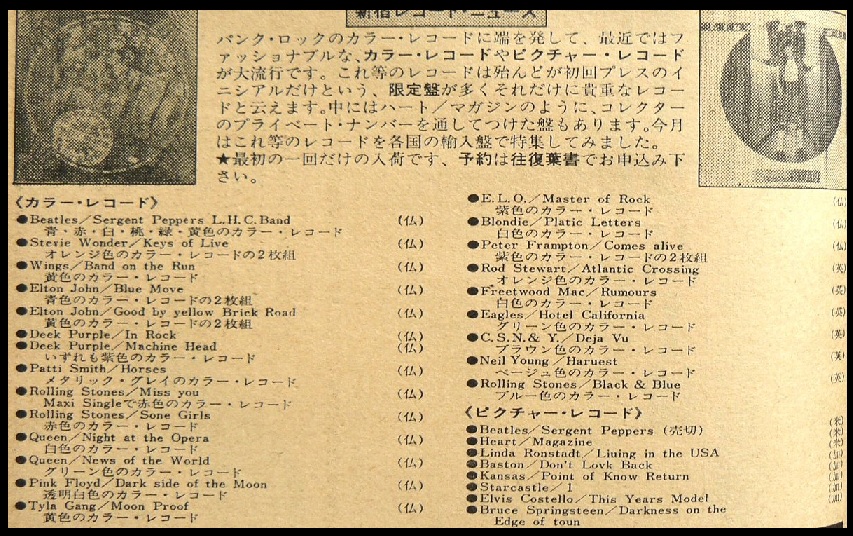 新宿レコード・ニュース
パンク・ロックのカラー・レコードに端を発して、最近ではフ
ァッショナブルな、カラー・レコードやピクチャー・レコード
が大流行です。これ等のレコードは殆んどが初回プレスのイ
ニシアルだけという、限定盤が多くそれだけに貴重なレコー
ドと云えます。中にはハート／マガジンのように、コレクター
のプライベート・ナンバーを通してつけた盤もあります。今月
はこれ等のレコードを各国の輸入盤で特集してみました。
★最初の一回だけの入荷です、予約は往復葉書でお申込み下
さい。
《カラー・レコード》
●Beatles／Sergent Peppers L.H.C.Band (仏)
青・赤・白・桃・緑・黄色のカラー・レコード
●Stevie Wonder／Keys of Live (仏)
オレンジ色のカラー・レコードの2枚組
●Wings／Band on the Run (仏)
黄色のカラー・レコード
●Elton John／Blue Move (仏)
青色のカラー・レコードの2枚組
●Elton John／Good by yellow Brick Road (仏)
黄色のカラー・レコードの2枚組
●Deek Purple／In Rock (仏)
●Deek Purple／Machine Head (仏)
いずれも紫色のカラー・レコード
●Patti Smith／Horses (仏)
メタリック・グレイのカラー・レコード
●Rolling Stones／Miss you (仏)
Maxi Singleで赤色のカラー・レコード
●Rolling Stones／Sone Girls (仏)
赤色のカラー・レコード
●Queen／Night at the Opera (仏)
白色のカラー・レコード
●Queen／News of the World (仏)
グリーン色のカラー・レコード
●Pink Floyd／Dark side of the Moon (仏)
透明白色のカラー・レコード
●Tyla Gang／Moon Proof (仏)
黄色のカラー・レコード
●E.L.O.／Master of Rock (仏)
紫色のカラー・レコード
●Blondie／Platic Letters (仏)
白色のカラー・レコード
●Peter Frampton／Comes alive (仏)
紫色のカラー・レコードの2枚組
●Rod Stewart／Atlantic Crossing (英)
オレンジ色のカラー・レコード
●Freetwood Mac／Rumours (英)
白色のカラー・レコード
●Eagles／Hotel California (英)
グリーン色のカラー・レコード
●C.S.N.& Y.／Deja Vu (英)
ブラウン色のカラー・レコード
●Neil Young／Haruest (英)
ベージュ色のカラー・レコード
●Rolling Stones／Black & Blue (英)
ブルー色のカラー・レコード
《ピクチャー・レコード》
●Beatles／Sergent Peppers (売切) (米)
●Heart／Magazine (米)
●Linda Ronstadt／Liuing in the USA (米)
●Baston／Don't Lovk Back (加)
●Kansas／Point of Know Return (加)
●Starcastle／1 (加)
●Elvis Costello／This Years Model (加)
●Bruce Springsteen／Darkness on the
Edge of toun